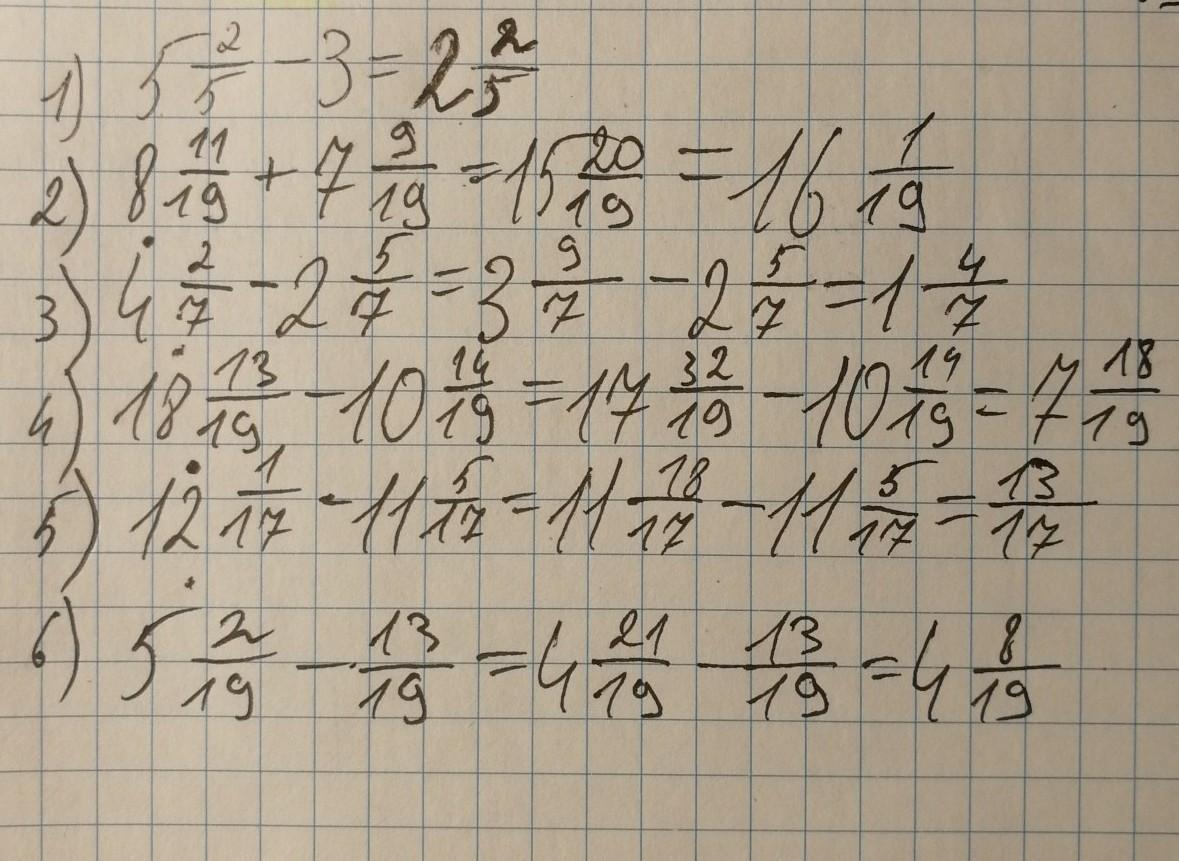 1) 5 2/5 - 3 = 2 2/5
2) 8 11/19 + 7 9/19 = 15 20/19 = 16 1/19
3) 4 2/7 - 2 5/7 = 3 9/7 - 2 5/7 = 1 4/7
4) 18 13/19 - 10 14/19 = 17 32/19 - 10 14/19 = 7 18/19
5) 12 1/17 - 11 5/17 = 11 18/17 - 11 5/17 = 13/17
6) 5 2/19 - 13/19 = 4 21/19 - 13/19 = 4 8/19